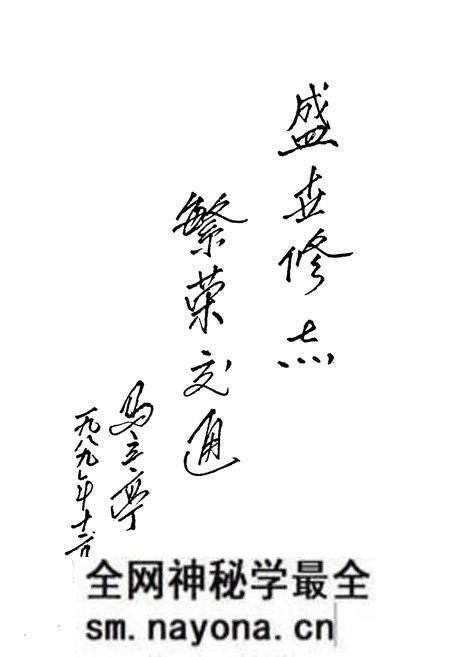 盛世修志
繁荣交通
马立亭
一九八九年十二月
全网神秘学最全
sm.nayona.cn